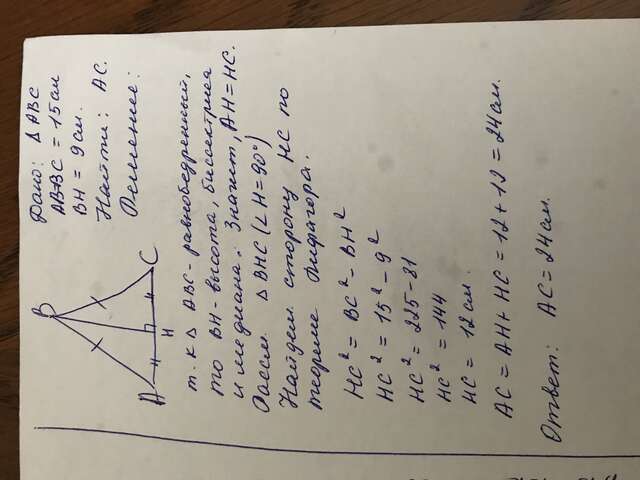 B
A
H
C
Дано: Δ ABC
AB=BC = 15см
BH = 9 см.
Найти: AC.
Решение:
т. к Δ ABC - равнобедренный,
то BH - высота, биссектриса
и медиана. Значит, AH = HC.
Рассм. Δ BHC (∠H=90°)
Найдем сторону HC по
теореме Пифагора.
HC² = BC² - BH²
HC² = 15² - 9²
HC² = 225 - 81
HC² = 144
HC = 12 см.
AC = AH + HC = 12 + 12 = 24 см.
Ответ: AC = 24 см.